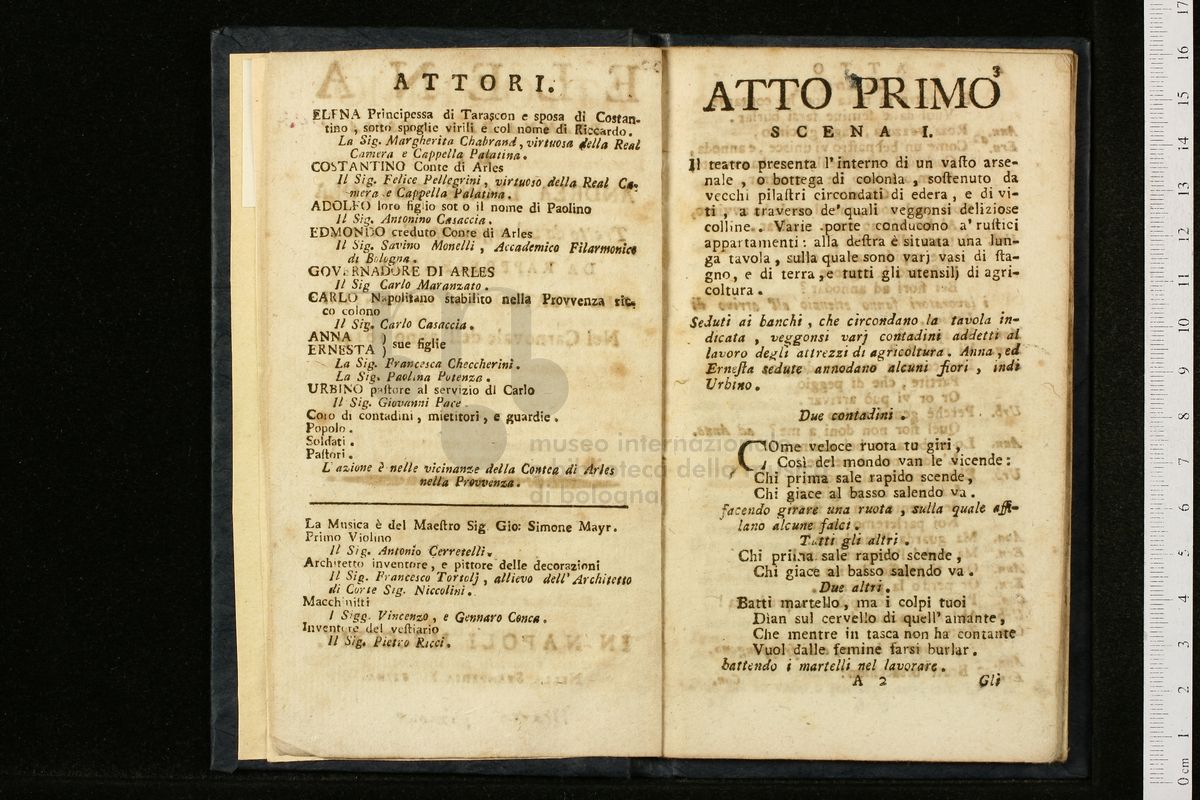 ATTORI.
ELENA Principessa di Tarascon e sposa di Costan-
tino, sotto spoglie virili e col nome di Riccardo.
La Sig. Margherita Chabrand, virtuosa della Real
Camera e Cappella Palatina.
COSTANTINO Conte di Arles
Il Sig. Felice Pellegrini, virtuoso della Real Ca-
mera e Cappella Palatina.
ADOLFO loro figlio sot o il nome di Paolino
Il Sig. Antonino Casaccia.
EDMONDO creduto Conte di Arles
Il Sig. Savino Monelli, Accademico Filarmonico
di Bologna.
GOVERNADORE DI ARLES
Il Sig Carlo Maranzato.
CARLO Napolitano stabilito nella Provvenza ric-
co colono
Il Sig. Carlo Casaccia.
ANNA )
ERNESTA ) sue figlie
La Sig. Francesca Checcherini.
La Sig. Paolina Potenza.
URBINO pastore al servizio di Carlo
Il Sig. Giovanni Pace.
Coro di contadini, mietitori, e guardie.
Popolo.
Soldati.
Pastori.
L'azione è nelle vicinanze della Contea di Arles
nella Provvenza.
La Musica è del Maestro Sig. Gio: Simone Mayr.
Primo Violino
Il Sig. Antonio Cerretelli.
Architetto inventore, e pittore delle decorazioni
Il Sig. Francesco Tortolj, allievo dell'Architetto
di Corte Sig. Niccolini.
Macchinisti
I Sigg. Vincenzo, e Gennaro Conca.
Inventore del vestiario
Il Sig. Pietro Ricci.
3
ATTO PRIMO
SCENA I.
Il teatro presenta l'interno di un vasto arse-
nale, o bottega di colonìa, sostenuto da
vecchi pilastri circondati di edera, e di vi-
ti, a traverso de'quali veggonsi deliziose
colline. Varie porte conducono a'rustici
appartamenti: alla destra è situata una lun-
ga tavola, sulla quale sono varj vasi di sta-
gno, e di terra, e tutti gli utensilj di agri-
coltura.
Seduti ai banchi, che circondano la tavola in-
dicata, veggonsi varj contadini addetti al
lavoro degli attrezzi di agricoltura. Anna, ed
Ernesta sedute annodano alcuni fiori, indi
Urbino.
Due contadini.
COme veloce ruota tu giri,
Così del mondo van le vicende:
Chi prima sale rapido scende,
Chi giace al basso salendo va.
facendo girare una ruota, sulla quale affi-
lano alcune falci.
Tutti gli altri.
Chi prima sale rapido scende,
Chi giace al basso salendo va.
Due altri.
Batti martello, ma i colpi tuoi
Dìan sul cervello di quell'amante,
Che mentre in tasca non ha contante
Vuol dalle femine farsi burlar.
battendo i martelli nel lavorare.
A 2 Gli
museo internazion
teca della
di bologna
0 cm 1 2 3 4 5 6 7 8 9 10 11 12 13 14 15 16 17